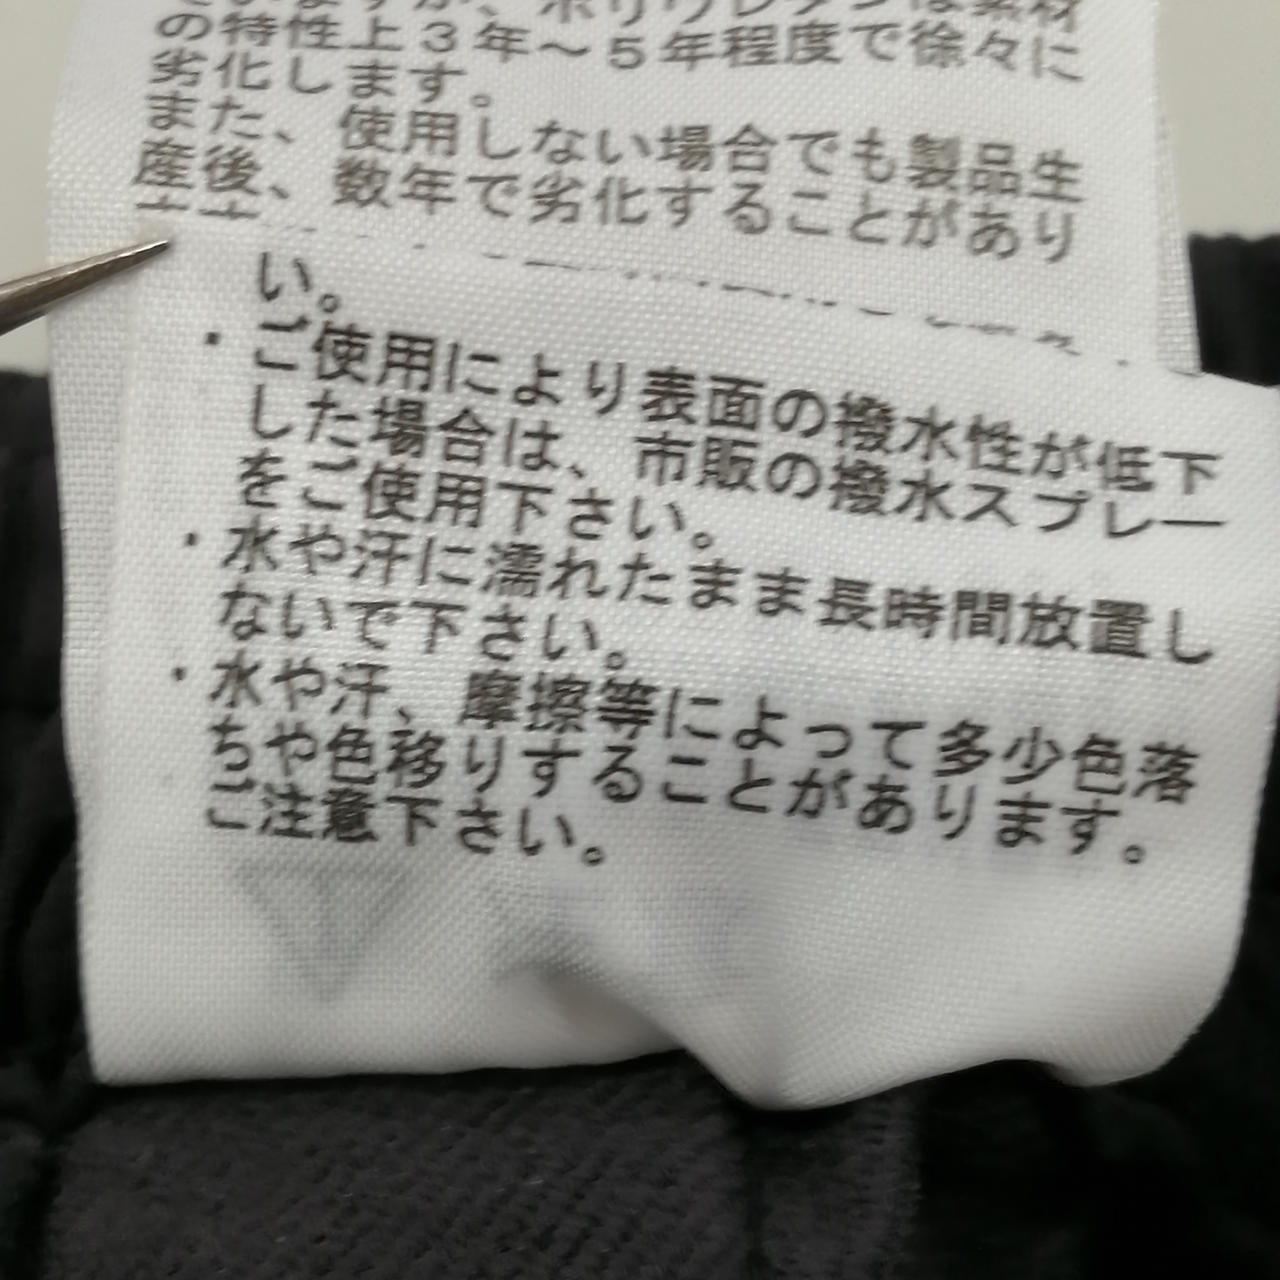 の特性上3年～5年程度で徐々に
劣化します。
また、使用しない場合でも製品生
産後、数年で劣化することがあり
い。
・ご使用により表面の撥水性が低下
した場合は、市販の撥水スプレー
をご使用下さい。
・水や汗に濡れたまま長時間放置し
ないで下さい。
・水や汗、摩擦等によって多少色落
ちや色移りすることがあります。
ご注意下さい。